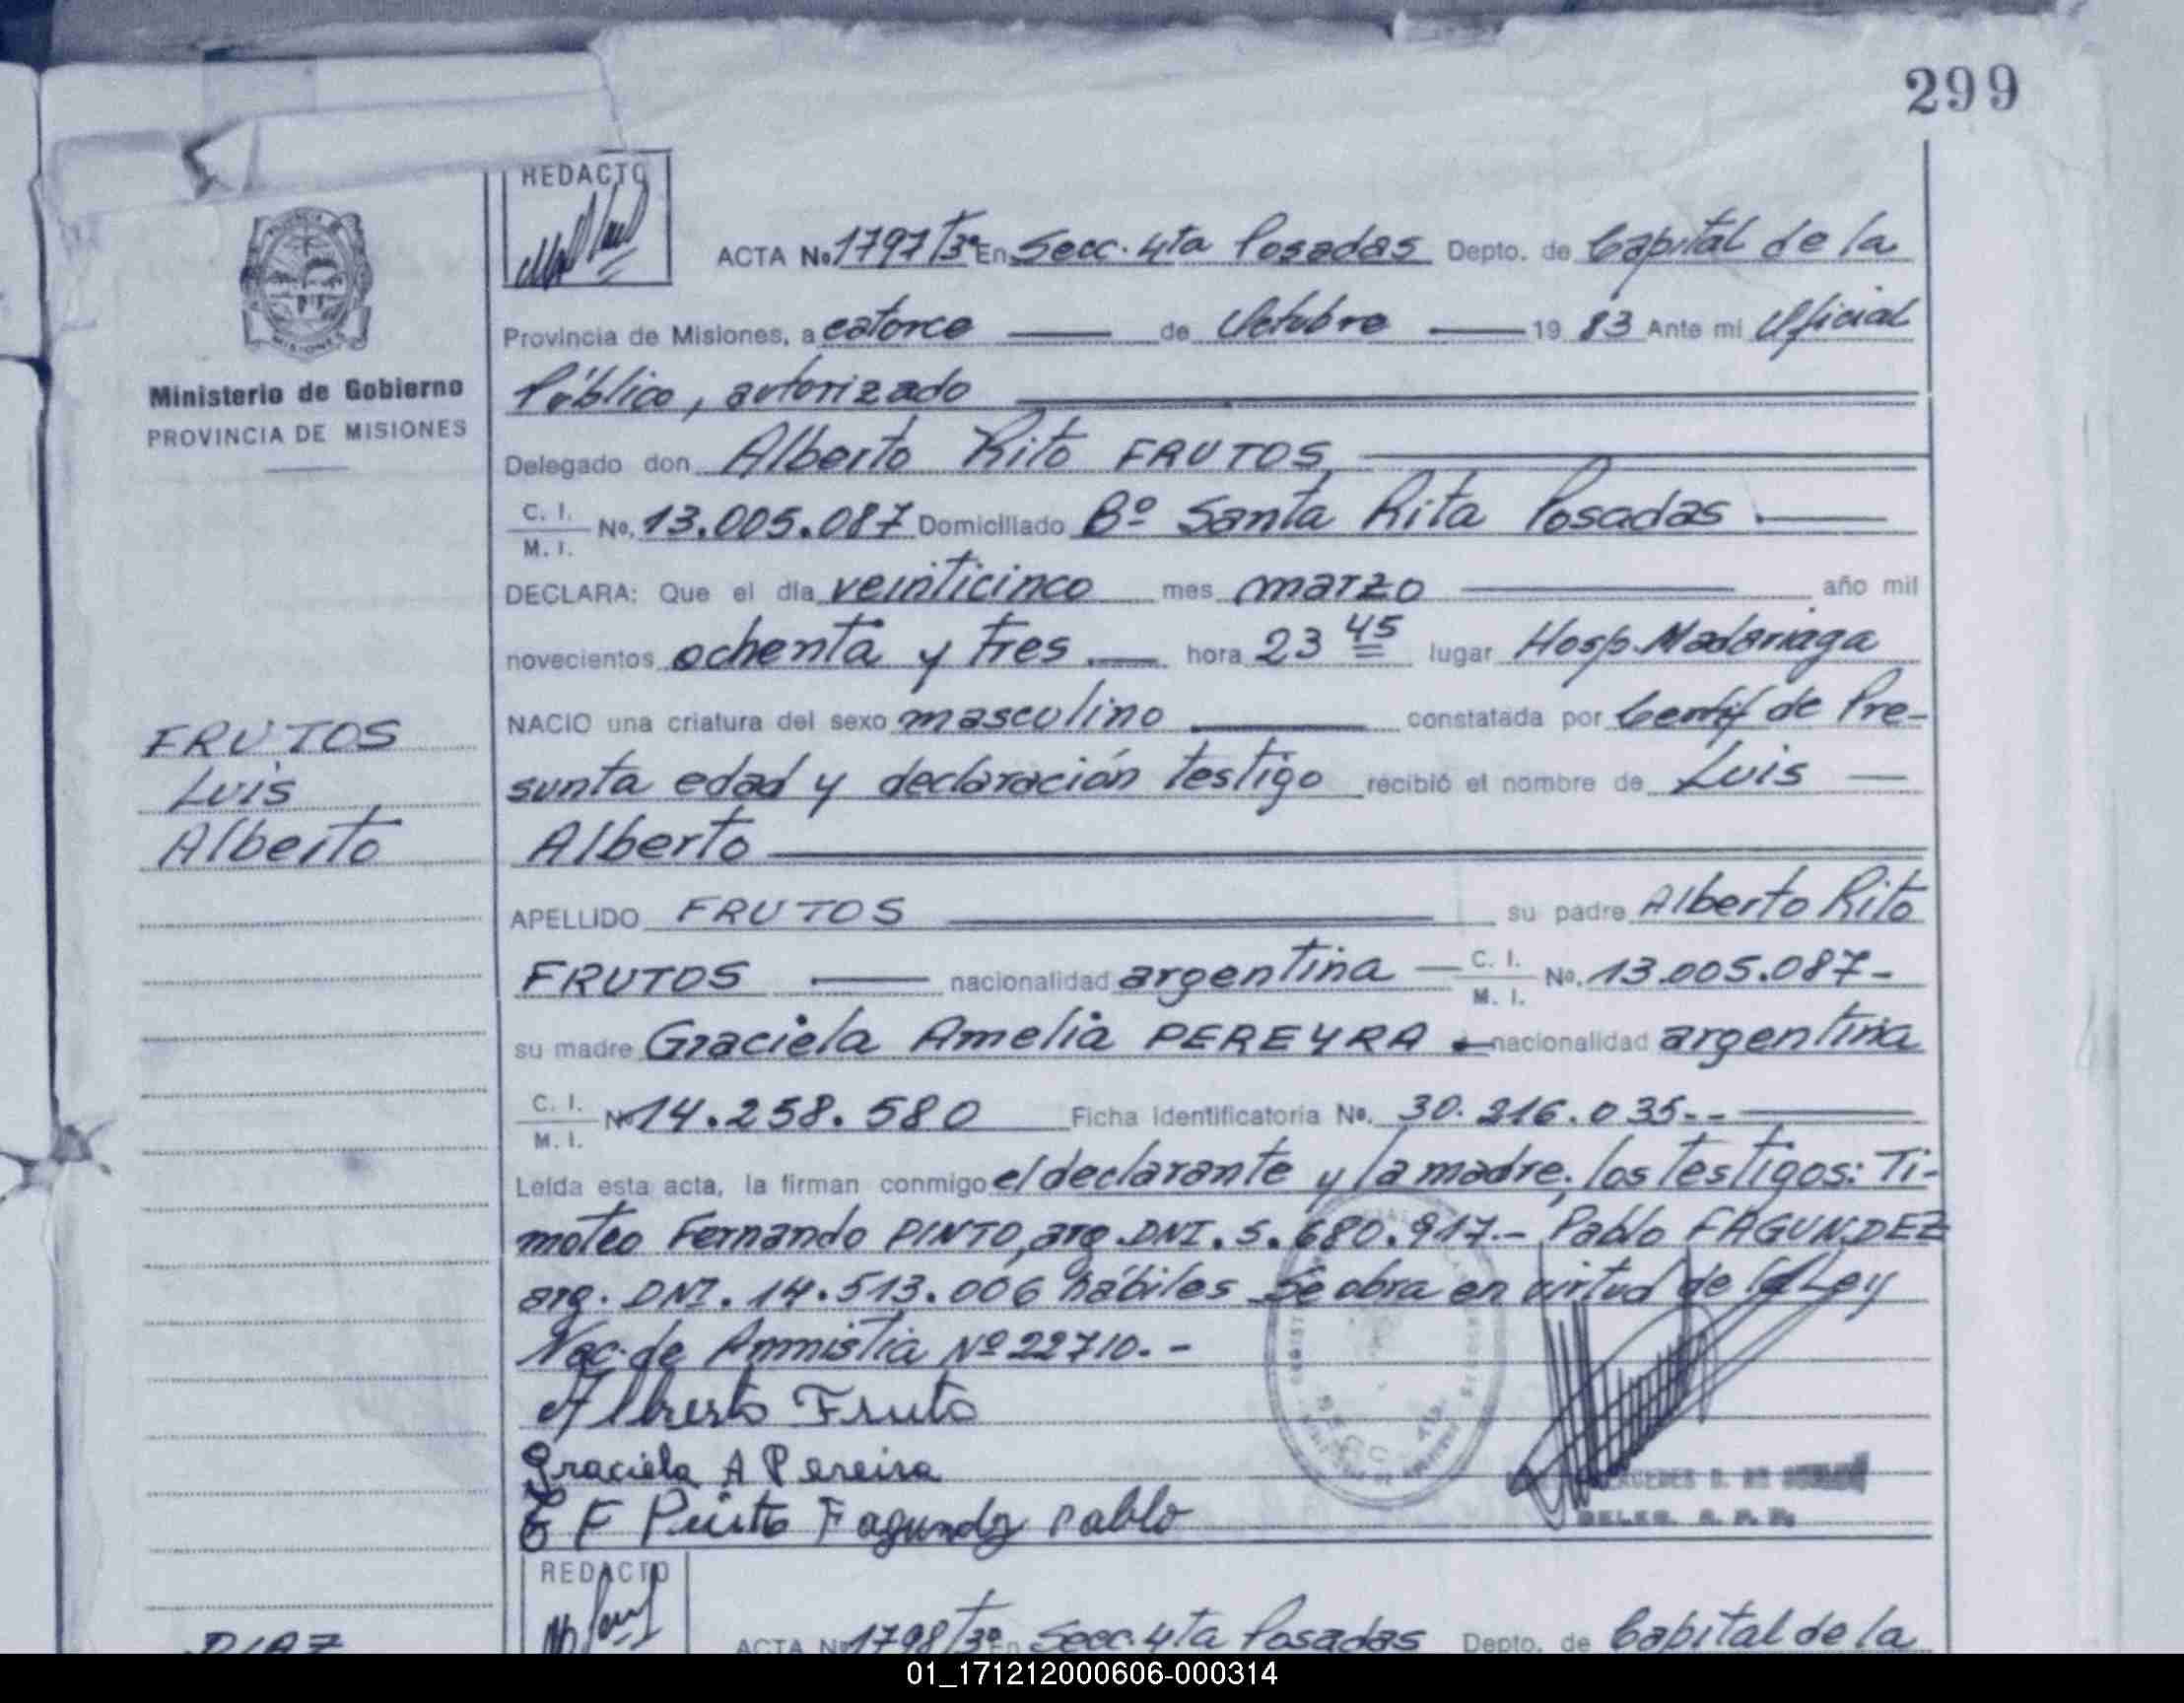 299
REDACTO
ACTA No 1797/3º En Secc. 4ta Posadas Depto. de Capital de la
Provincia de Misiones, a catorce de Octubre 19 83 Ante mi Oficial
Público, autorizado
Ministerio de Gobierno
PROVINCIA DE MISIONES
Delegado don Alberto Rito FRUTOS
C. I.
M. I. No. 13.005.087 Domiciliado Bº Santa Rita Posadas.
DECLARA: Que el día veinticinco mes marzo año mil
novecientos ochenta y tres hora 23 45 lugar Hosp. Madariaga
NACIO una criatura del sexo masculino constatada por Certif de Pre-
sunta edad y declaración testigo recibió el nombre de Luis
Alberto
FRUTOS
Luis
Alberto
APELLIDO FRUTOS su padre Alberto Rito
FRUTOS nacionalidad argentina C. I.
M. I. No. 13.005.087-
su madre Graciela Amelia PEREYRA nacionalidad argentina
C. I.
M. I. No 14.258.580 Ficha identificatoria No. 30.216.035--
Leída esta acta, la firman conmigo el declarante y la madre; los testigos: Ti-
moteo Fernando PINTO, arg. DNI. 5.680.917.- Pablo FAGUNDEZ
arg. DNI. 14.513.006 hábiles Se obra en virtud de la Ley
Nac. de Ammistia Nº 22710.-
Alberto Fruto
Graciela A Pereira
T F Pinto Fagundez Pablo
REDACTO
ACTA No 1798/3º En Secc. 4ta Posadas Depto. de Capital de la
DIAZ
01_171212000606-000314